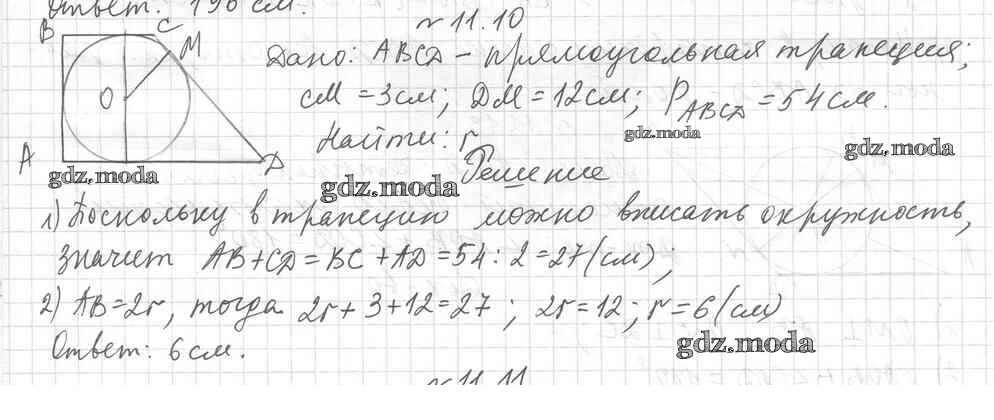 Ответ: 196 см.
№ 11.10
B C M
O
A D
Дано: ABCD – прямоугольная трапеция;
CM = 3см; DM = 12 см; P_ABCD = 54 см.
Найти: r
Решение
1) Поскольку в трапецию можно вписать окружность,
значит AB + CD = BC + AD = 54 : 2 = 27 (см);
2) AB = 2r, тогда 2r + 3 + 12 = 27; 2r = 12; r = 6 (см)
Ответ: 6 см.
№ 11.11
gdz.moda
gdz.moda
gdz.moda
gdz.moda
gdz.moda